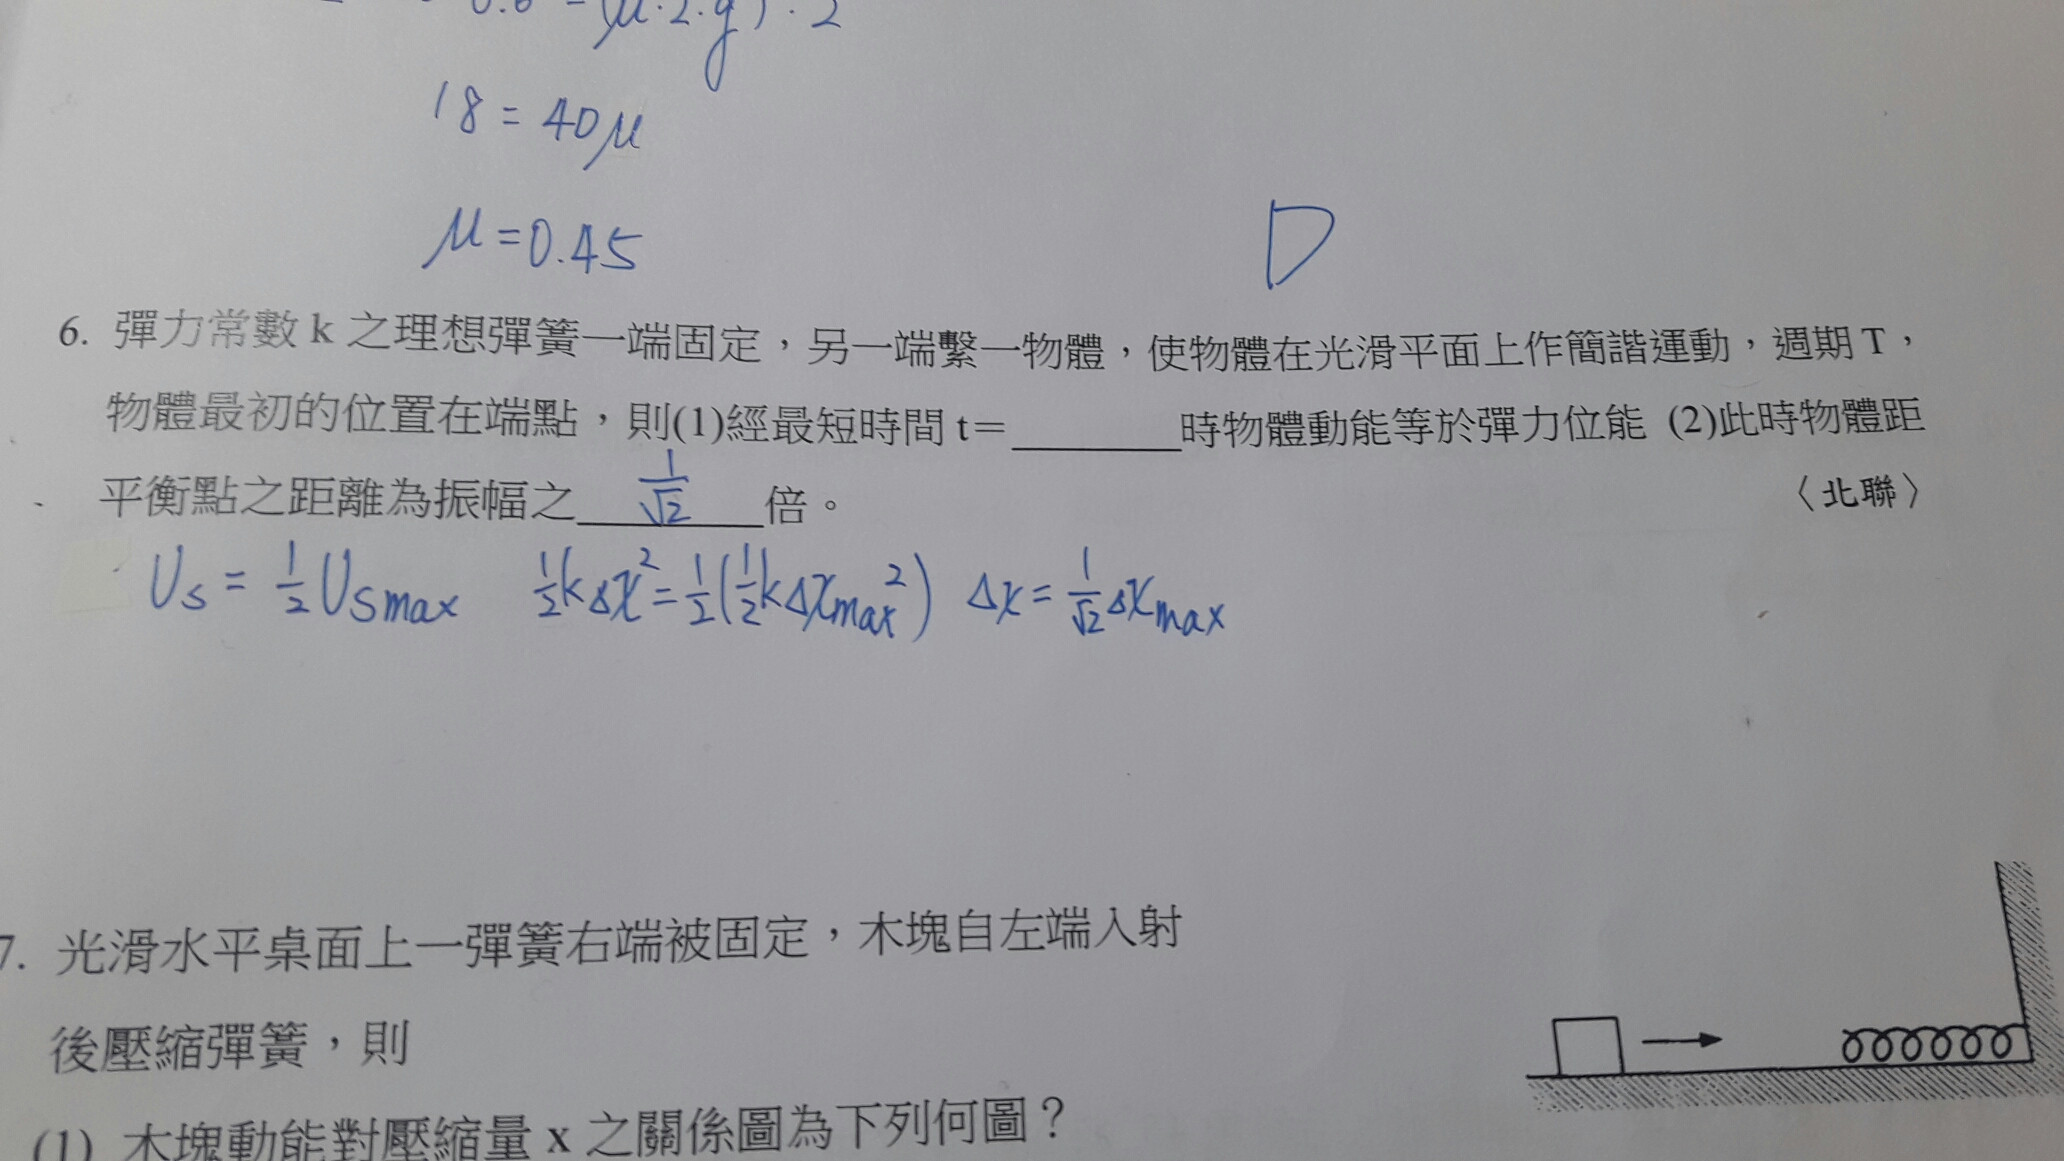 0.6 = (μ·2·g)·2
18 = 40μ
μ = 0.45
D
6. 彈力常數 k 之理想彈簧一端固定，另一端繫一物體，使物體在光滑平面上作簡諧運動，週期 T，
物體最初的位置在端點，則(1)經最短時間 t＝________時物體動能等於彈力位能 (2)此時物體距
平衡點之距離為振幅之 1/√2 倍。 〈北聯〉
Us = 1/2 Usmax 1/2kΔx² = 1/2(1/2kΔxmax²) Δx = 1/√2 Δxmax
7. 光滑水平桌面上一彈簧右端被固定，木塊自左端入射
後壓縮彈簧，則
(1) 木塊動能對壓縮量 x 之關係圖為下列何圖？